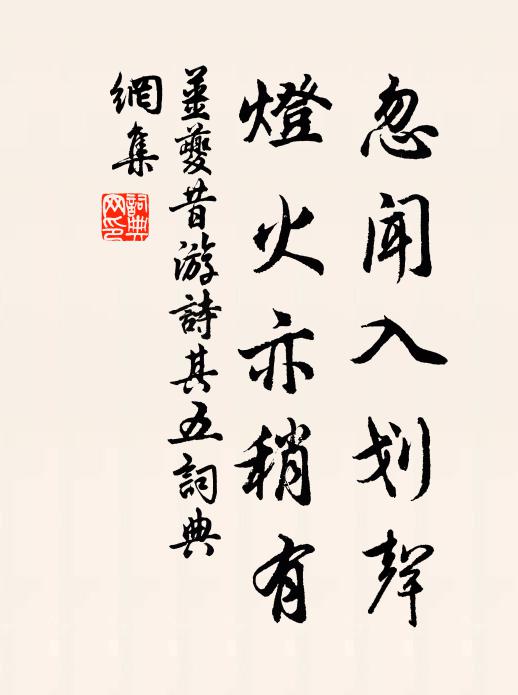 忽聞入划聲
燈火亦稍有
姜夔昔游詩其五詞典
網集
詞典網印